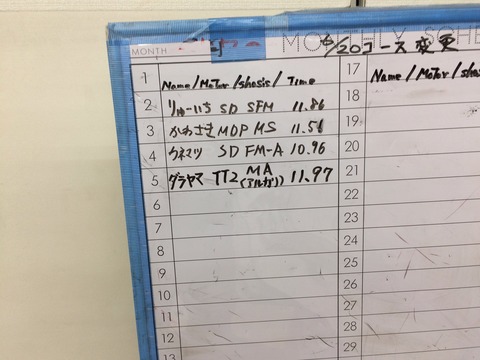 MONTHLY SCHE
6/20コース変更
MONTH
1 Name/Motor/shasis/Time
2 りゅーいち SD SFM 11.86
3 かわさき MDP MS 11.51
4 ウネマツ SD FM-A 10.96
5 ダラヤマ TT2 MA (アルカリ) 11.97
6
7
8
9
10
11
12
13
17 Name/Motor/shas
18
19
20
21
22
23
24
25
26
27
28
29